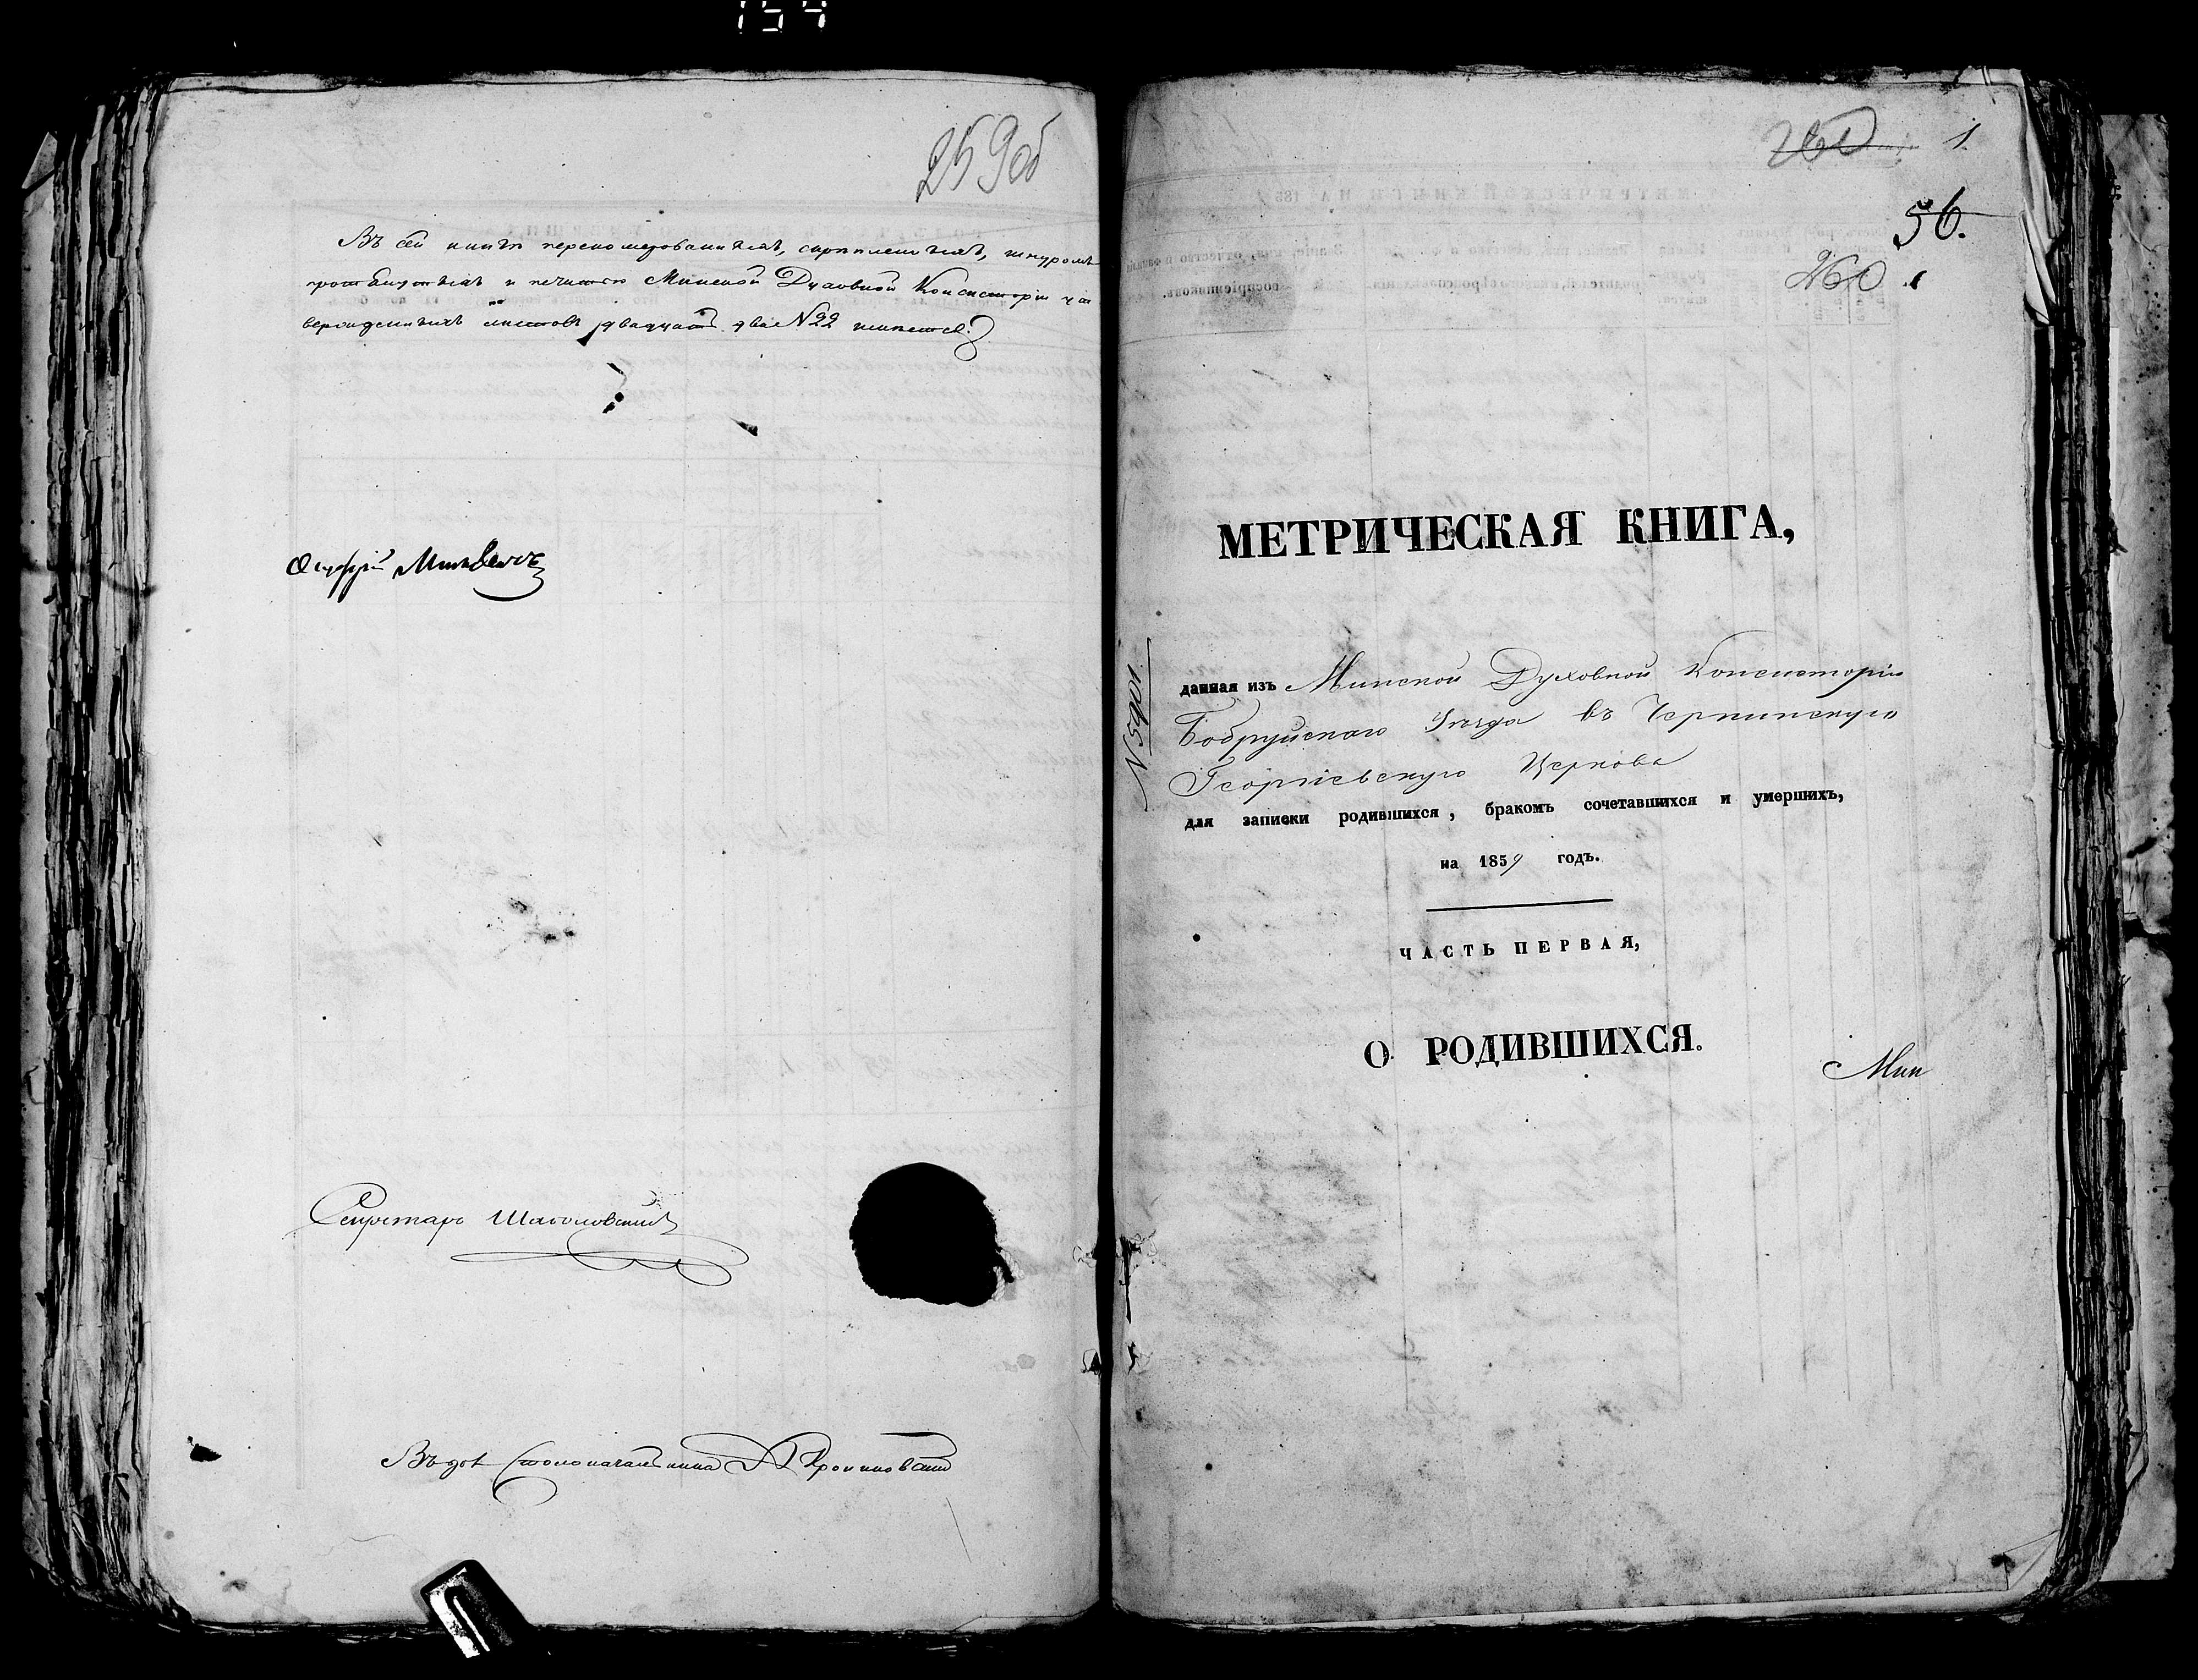 154
259об
Въ сей книгѣ перенумерованныхъ, скрѣпленныхъ, шнуромъ
и печатью Минской Духовной Консисторіи
листовъ двадцать два №22
Онуфрій
Секретарь
Въ дол. Столоначальника
260 1.
56.
260
МЕТРИЧЕСКАЯ КНИГА,
№5901.
данная изъ Минской Духовной Консисторіи
Бобруйскаго Уѣзда въ Чернинскую
Георгіевскую Церковь
для записки родившихся, бракомъ сочетавшихся и умершихъ,
на 1859 годъ.
ЧАСТЬ ПЕРВАЯ,
О РОДИВШИХСЯ.
Мин